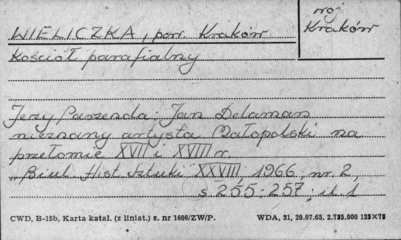 WIELICZKA, pow. Kraków
woj
Kraków
Kościół parafialny
Jerzy Paszenda: Jan Delamars
nieznany artysta Małopolski na
przełomie XVII i XVIII w.
„Biul. Hist. Sztuki XXVIII, 1966, nr. 2,
s. 255-257; il. 1
CWD, B-15b, Karta katal. (z liniat.) z. nr 1606/ZW/P.
WDA, 31, 20.07.65, 2.725.000 125×75